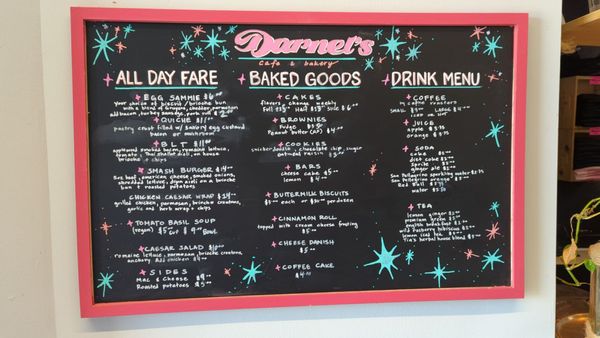 Darnel's
Cafe & bakery
ALL DAY FARE
EGG SAMMIE $6
your choice of biscuit / brioche bun
with a blend of Gruyere, cheddar, parmesan
add bacon, turkey sausage, pork roll $2.00
QUICHE $11.00
pastry crust filled w/ savory egg custard
bacon or mushroom
BLT $11.00
applewood smoked bacon, romaine lettuce,
tomato, on house
brioche + chips
SMASH BURGER $14.00
american cheese, smoked onions,
shredded lettuce, dijon aioli on a brioche
bun & roasted potatoes
CHICKEN CAESAR WRAP $14.00
grilled chicken, parmesan, brioche croutons,
garlic and herb wrap + chips
TOMATO BASIL SOUP
(vegan) $5.00 Cup $9.00 Bowl
CAESAR SALAD $10.00
romaine lettuce, parmesan, brioche croutons,
anchovy Add chicken $4.00
SIDES
Mac & Cheese $9.00
Roasted potatoes $5.00
BAKED GOODS
CAKES
flavors change weekly
Full Half Slice $6.00
BROWNIES
Fudge
Peanut butter (GF) $4.00
COOKIES
snickerdoodle, chocolate chip, sugar
oatmeal raisin $3.00
BARS
cheese cake $5.00
lemon $4.00
BUTTERMILK BISCUITS
each or per dozen
CINNAMON ROLL
topped with cream cheese frosting
$5.00
CHEESE DANISH
$5.00
COFFEE CAKE
$4.00
DRINK MENU
COFFEE
roasters
Small Large $4.00
iced or hot
JUICE
apple $3.75
orange $3.75
SODA
coke
diet coke
Sprite
ginger ale
San Pellegrino sparkling water
San Pellegrino orange
Red Bull
water
TEA
lemon ginger
premium green
english breakfast
wild raspberry hibiscus
lemon iced tea
Tia's herbal house blend